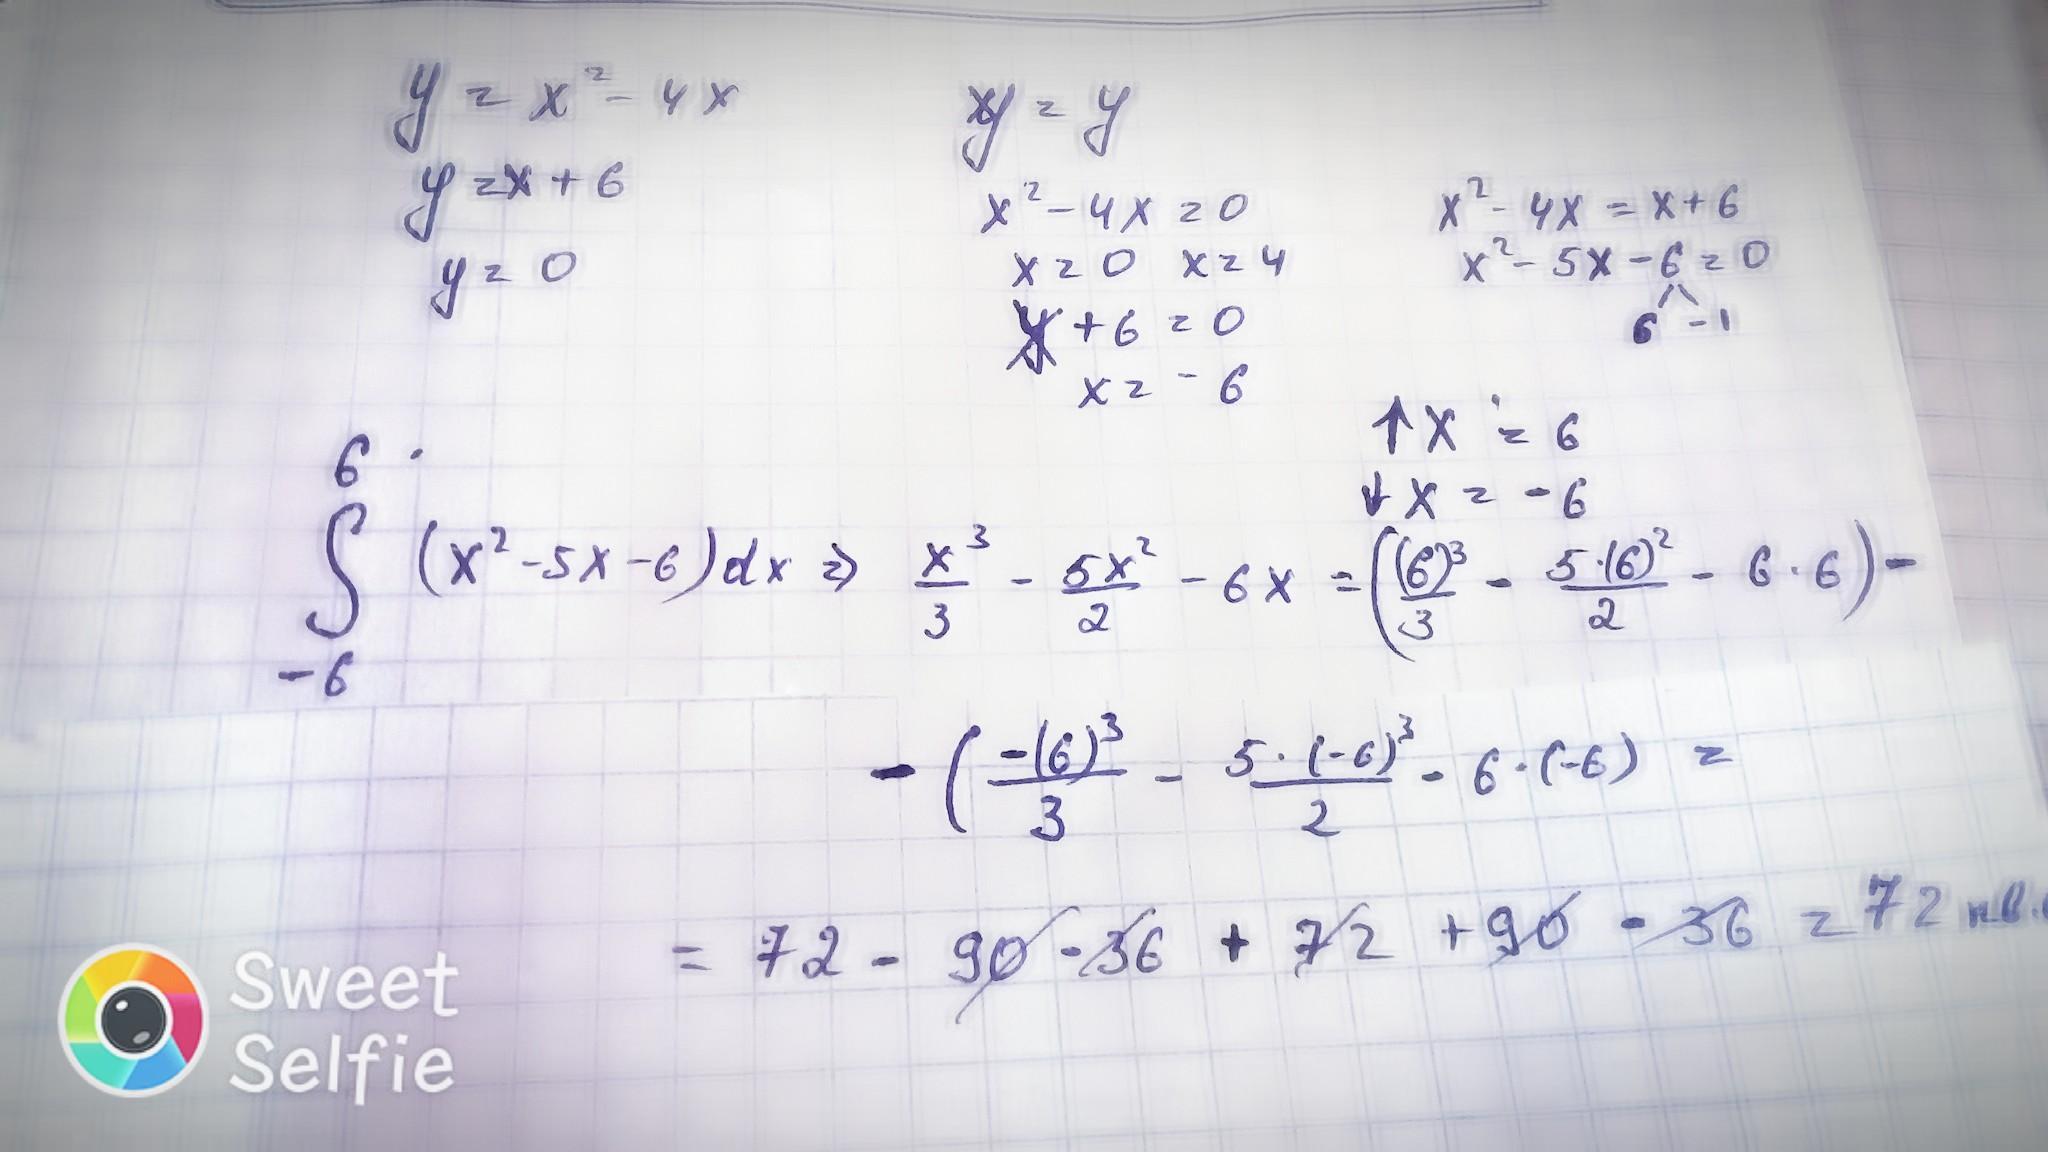 y = x² - 4x
y = x + 6
y = 0
xy = y
x² - 4x = 0
x = 0 x = 4
+ 6 = 0
x = - 6
x² - 4x = x + 6
x² - 5x - 6 = 0
6 -1
↑ x = 6
↓ x = - 6
∫₋₆⁶ (x² - 5x - 6) dx ⇒ x³/3 - 5x²/2 - 6x = ((6)³/3 - 5·(6)²/2 - 6·6) -
- (-(6)³/3 - 5·(-6)³/2 - 6·(-6)) =
= 72 - 90 - 36 + 72 + 90 - 36 = 72 кв.
Sweet
Selfie